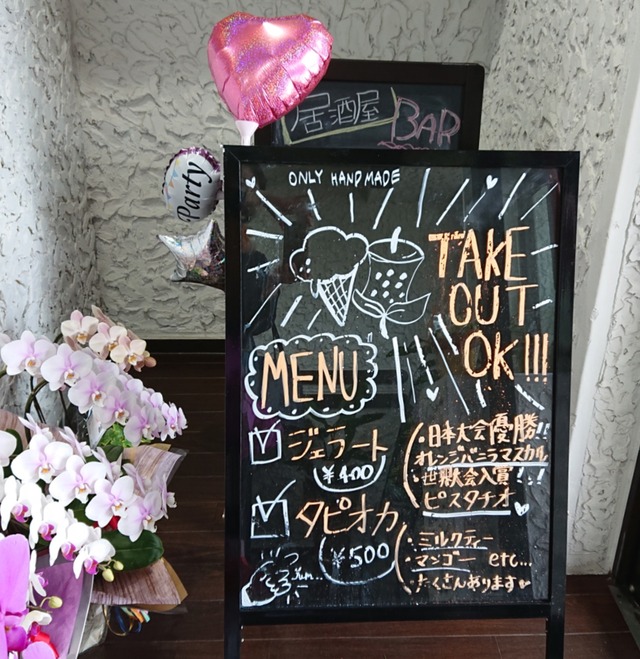 居酒屋
BAR
Party
ONLY HANDMADE
TAKE
OUT
OK!!!
MENU
ジェラート
¥400
・日本大会優勝!!
オレンジバニラマスカル
・世界大会入賞!..!
ピスタチオ
タピオカ
¥500
・ミルクティー
・マンゴー etc...
・たくさんあります